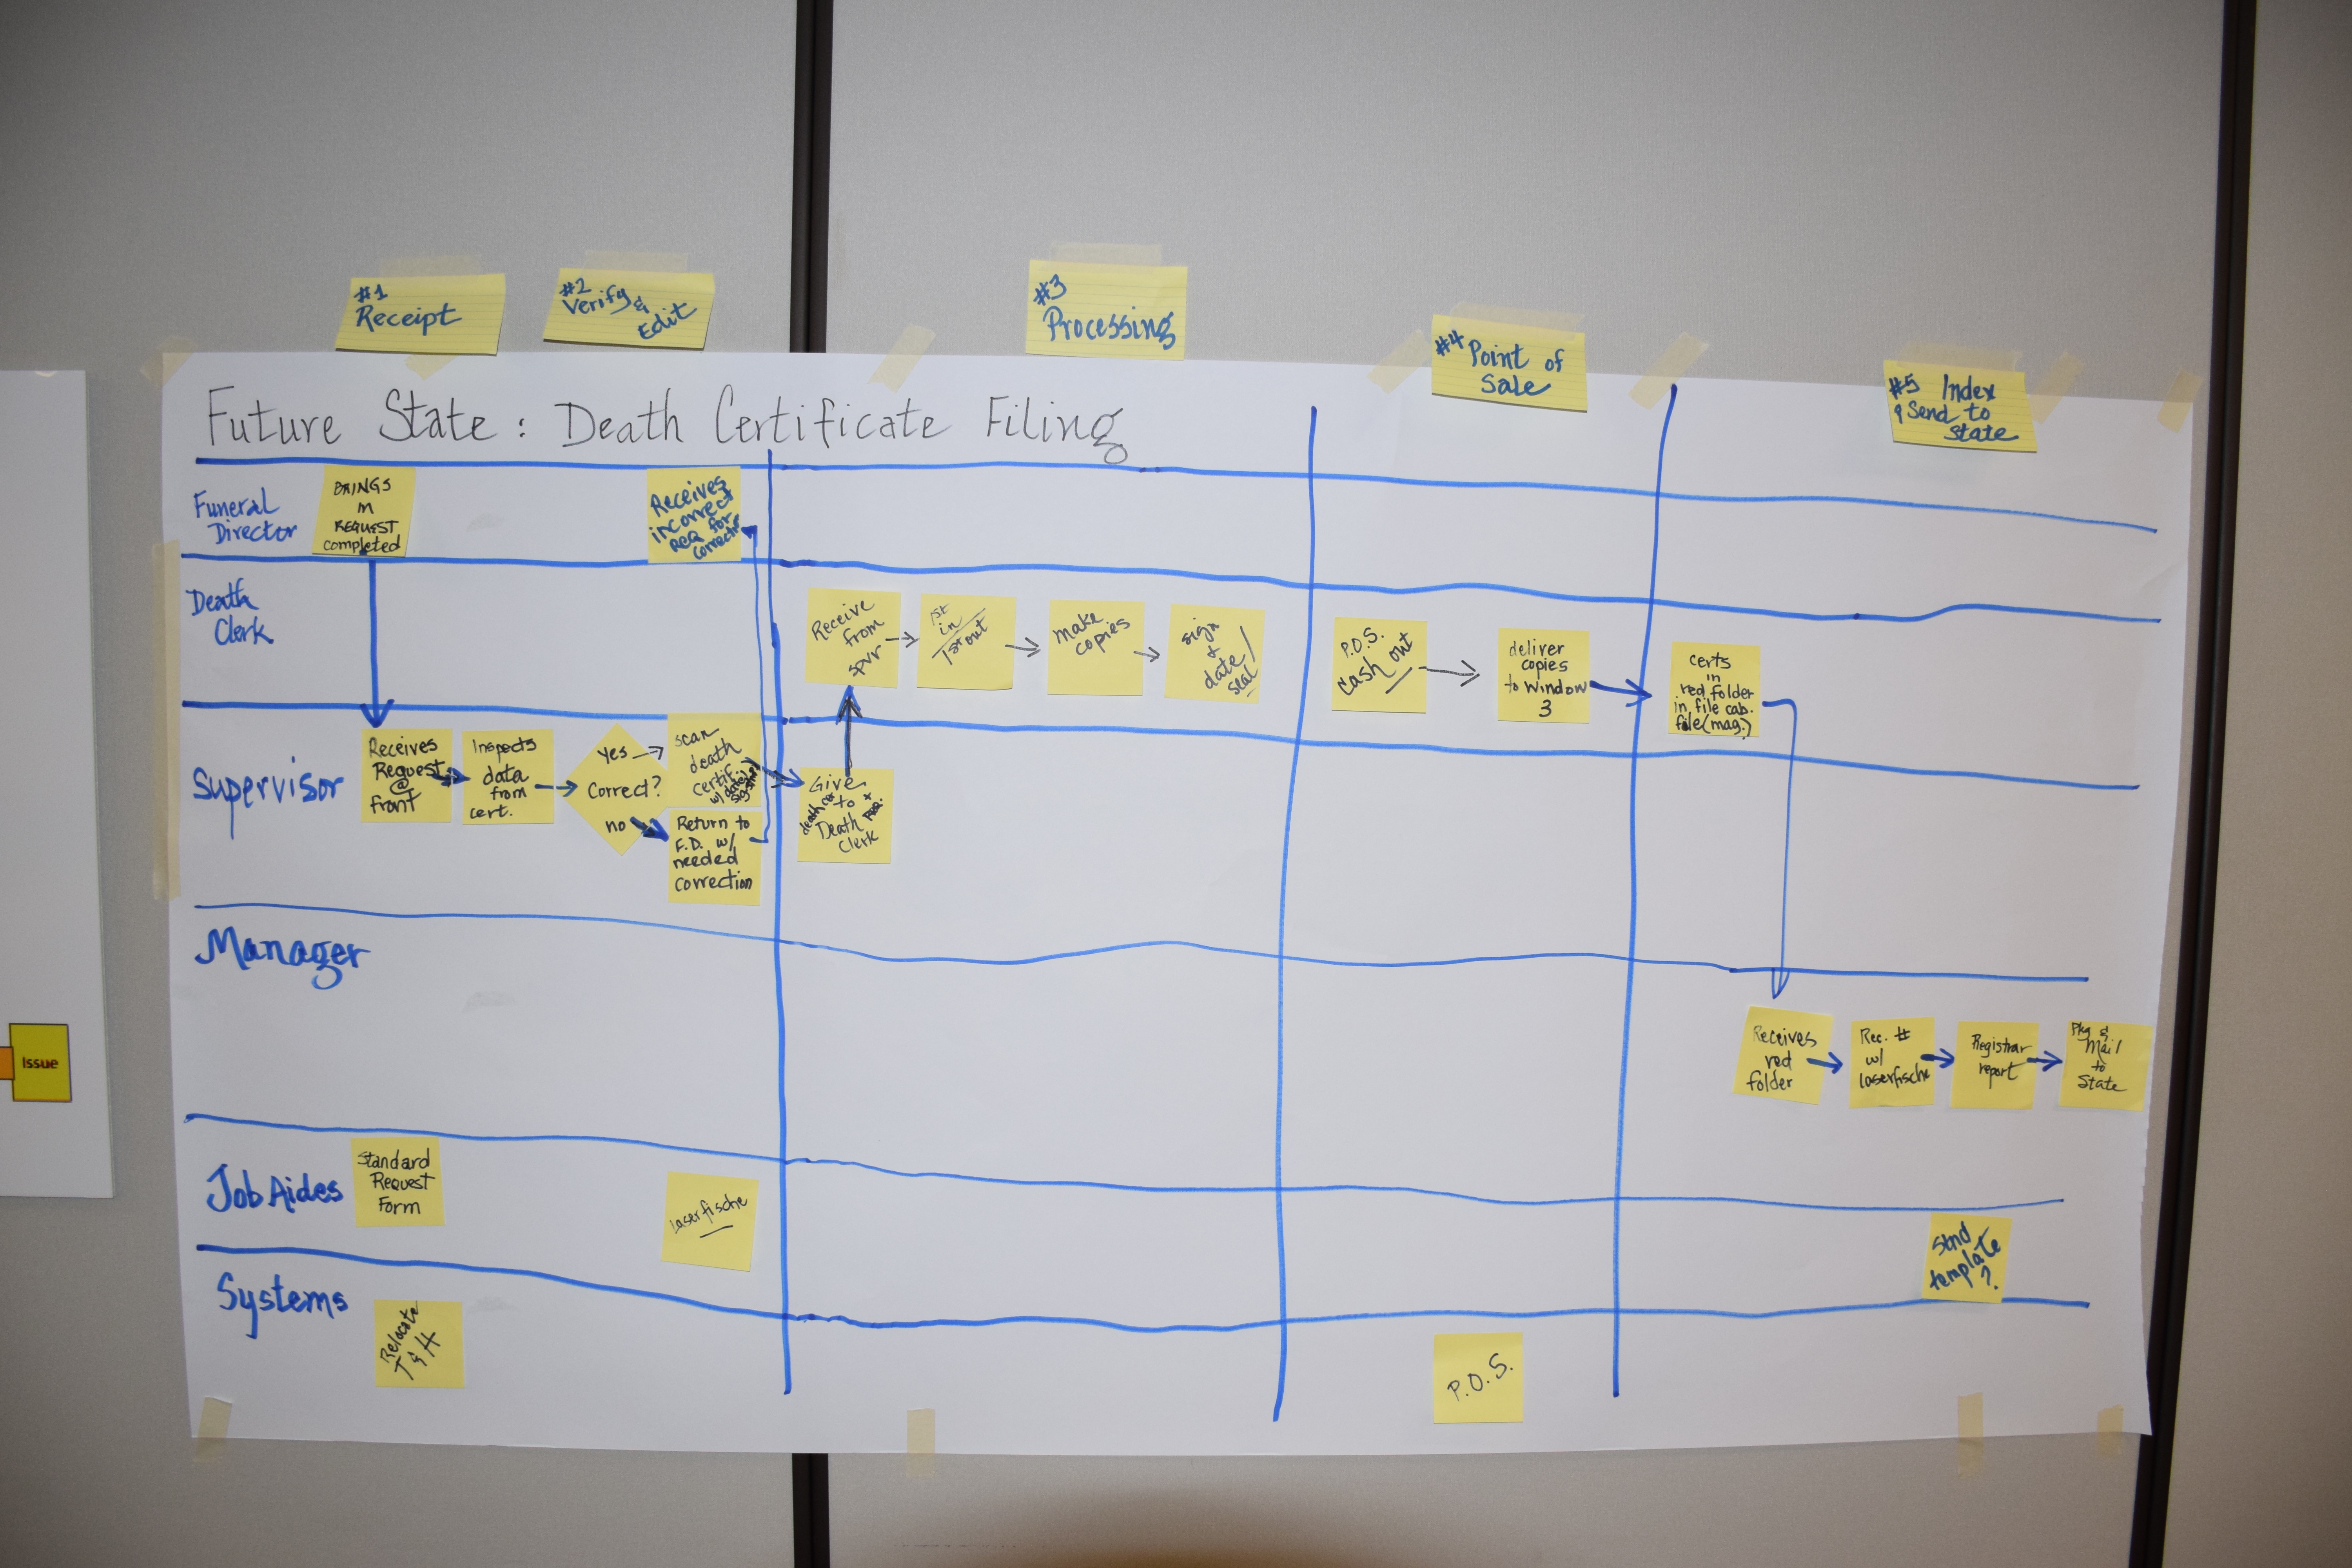 #1
Receipt
#2
Verify &
Edit
#3
Processing
#4 Point of
Sale
#5 Index
& Send to
State
Future State: Death Certificate Filing
Funeral
Director
BRINGS
IN
REQUEST
completed
Receives
incorrect
req for
correction
Death
Clerk
Receive
from
spvr
1st
in/
1st out
make
copies
sign
+
date/
seal
P.O.S.
cash out
deliver
copies
to window
3
certs
in
red folder
in file cab.
file (mag.)
Supervisor
Receives
Request
@
front
Inspects
data
from
cert.
yes
Correct?
no
scan
death
certif
w/ date/
Return to
F.D. w/
needed
correction
Give
death cer to +
Death
Clerk
Manager
Receives
red
folder
Rec. #
w/
laserfische
Registrar
report
Pkg &
Mail
to
State
Job Aides
Standard
Request
Form
laserfische
Stnd
template
?
Systems
Relocate
T & H
P.O.S.
Issue